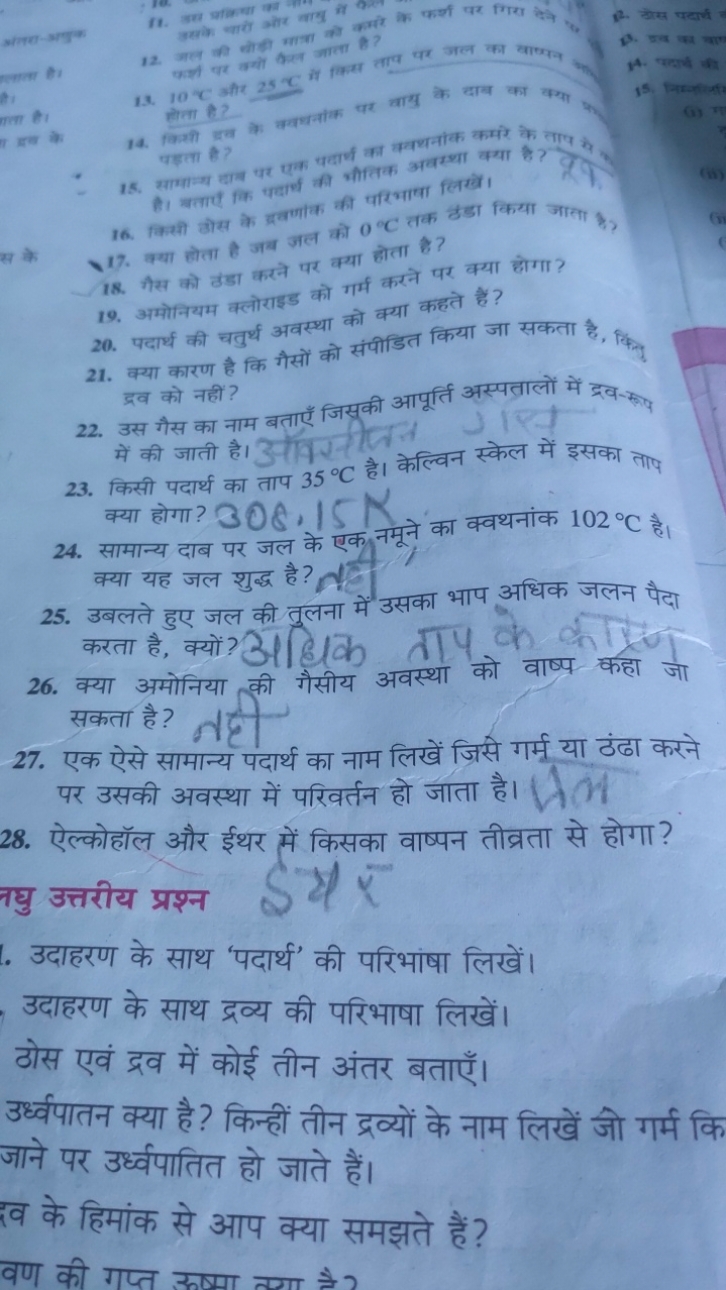 12. जल की थोड़ी मात्रा को कमरे के फर्श पर गिरा देने पर
फर्श पर क्यों फैल जाता है?
13. 10 °C और 25 °C में किस ताप पर जल का वाष्पन
होता है?
14. किसी द्रव के क्वथनांक पर वायु के दाब का क्या
पड़ता है?
15. सामान्य दाब पर एक पदार्थ का क्वथनांक कमरे के ताप से
है। बताएँ कि पदार्थ की भौतिक अवस्था क्या है?
16. किसी ठोस के द्रवणांक की परिभाषा लिखें।
17. क्या होता है जब जल को 0 °C तक ठंडा किया जाता है?
18. गैस को ठंडा करने पर क्या होता है?
19. अमोनियम क्लोराइड को गर्म करने पर क्या होगा?
20. पदार्थ की चतुर्थ अवस्था को क्या कहते हैं?
21. क्या कारण है कि गैसों को संपीडित किया जा सकता है, किंतु
द्रव को नहीं?
22. उस गैस का नाम बताएँ जिसकी आपूर्ति अस्पतालों में द्रव-रूप
में की जाती है।
23. किसी पदार्थ का ताप 35 °C है। केल्विन स्केल में इसका ताप
क्या होगा? 308.15 K
24. सामान्य दाब पर जल के एक नमूने का क्वथनांक 102 °C है।
क्या यह जल शुद्ध है? नही
25. उबलते हुए जल की तुलना में उसका भाप अधिक जलन पैदा
करता है, क्यों? अधिक ताप के कारण
26. क्या अमोनिया की गैसीय अवस्था को वाष्प कहा जा
सकता है? नही
27. एक ऐसे सामान्य पदार्थ का नाम लिखें जिसे गर्म या ठंढा करने
पर उसकी अवस्था में परिवर्तन हो जाता है। जल
28. ऐल्कोहॉल और ईथर में किसका वाष्पन तीव्रता से होगा?
ईथर
लघु उत्तरीय प्रश्न
1. उदाहरण के साथ 'पदार्थ' की परिभांषा लिखें।
उदाहरण के साथ द्रव्य की परिभाषा लिखें।
ठोस एवं द्रव में कोई तीन अंतर बताएँ।
उर्ध्वपातन क्या है? किन्हीं तीन द्रव्यों के नाम लिखें जो गर्म कि
जाने पर उर्ध्वपातित हो जाते हैं।
द्रव के हिमांक से आप क्या समझते हैं?
वण की गुप्त ऊष्मा क्या है?